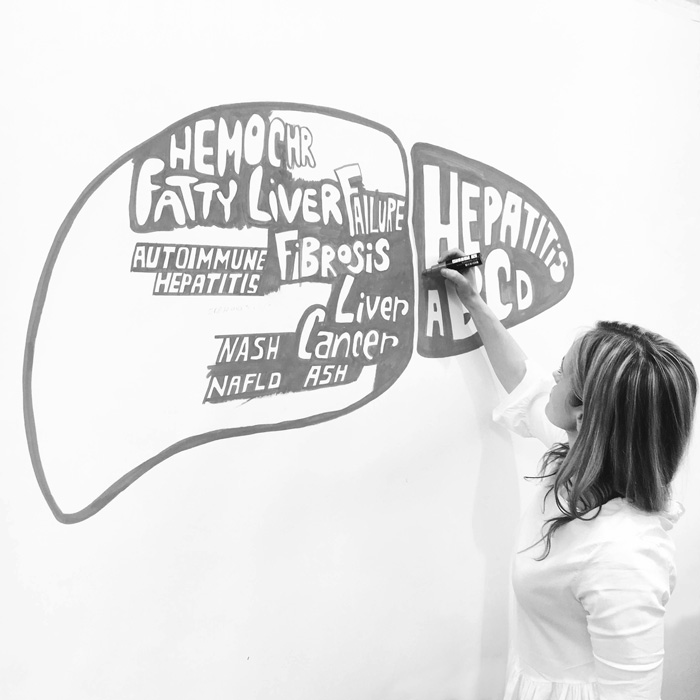 HEMOCHR
FATTY LiVER
FAILURE
AUTOIMMUNE
HEPATITIS
FiBROSIS
Liver
Cancer
NASH
NAFLD ASH
HEPATITiS
ABCD